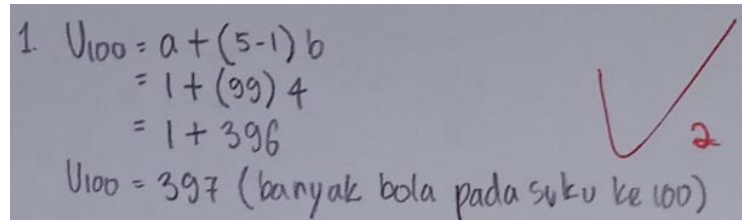 1. U100 = a + (5-1) b
= 1 + (99) 4
= 1 + 396
U100 = 397 (banyak bola pada suku ke 100)
2